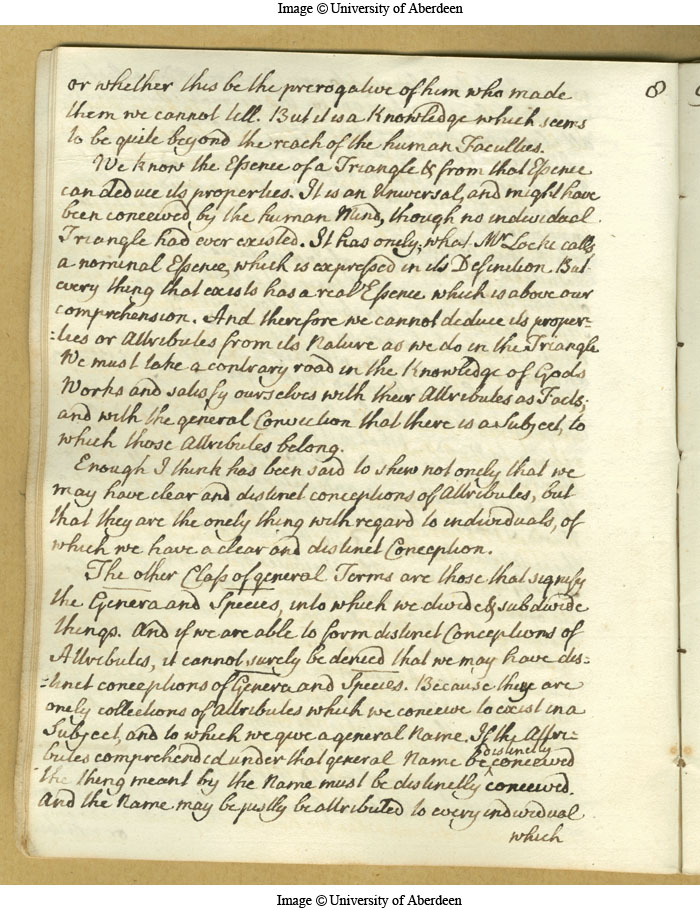 Image © University of Aberdeen
8
or whether this be the prerogative of him who made
them we cannot tell. But it is a Knowledge which seems
to be quite beyond the reach of the human Faculties.
We know the Essence of a Triangle & from that Essence
can deduce its properties. It is an Universal, and might have
been conceived by the human Mind, though no individual
Triangle had ever existed. It has onely, what Mr Locke calls
a nominal Essence, which is expressed in its Definition. But
every thing that exists has a real Essence which is above our
comprehension. And therefore we cannot deduce its proper=
=ties or Attributes from its Nature as we do in the Triangle.
We must take a contrary road in the Knowledge of Gods
Works and satisfy ourselves with their Attributes as Facts;
and with the general Conviction that there is a Subject, to
which those Attributes belong.
Enough I think has been said to shew not onely that we
may have clear and distinct conceptions of Attributes, but
that they are the onely thing with regard to individuals, of
which we have a clear and distinct Conception.
The other Class of general Terms are those that signify
the Genera and Species, into which we divide & subdivide
things. And if we are able to form distinct Conceptions of
Attributes, it cannot surely be denied that we may have dis=
=tinct conceptions of Genera and Species. Because they are
onely collections of Attributes which we conceive to exist in a
Subject, and to which we give a general Name. If the Attri=
distinctly
butes comprehended under that general Name be conceived
the thing meant by the Name must be distinctly conceived.
And the Name may be justly be attributed to every individual
which
Image © University of Aberdeen